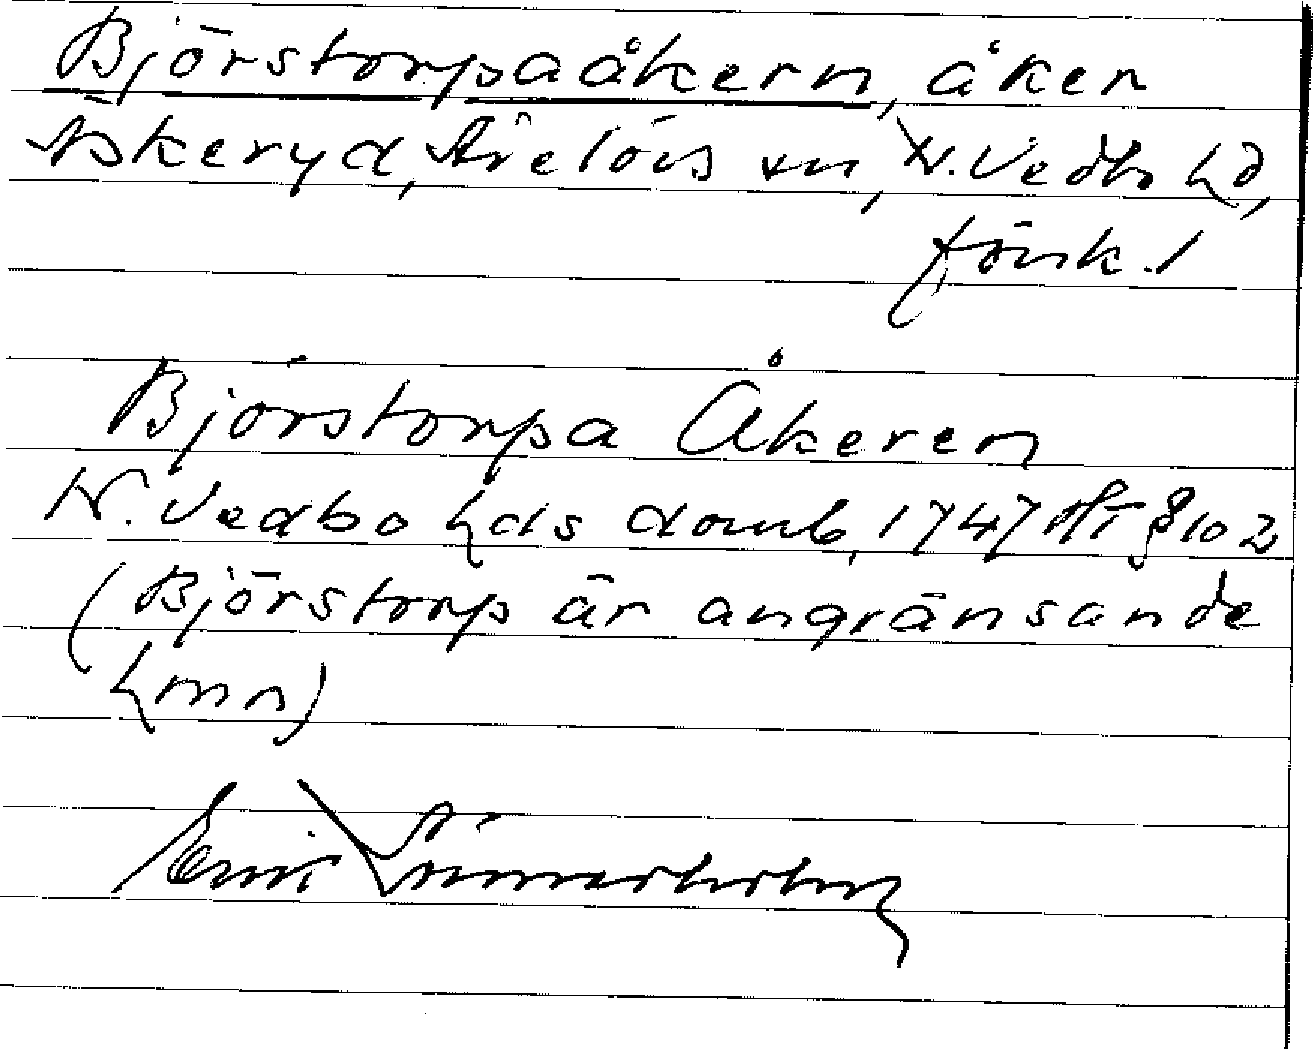 Björstorpaåkern, åker
Äskeryd, Årelövs sn, N. Vedbo hd,
Jönk. l
Björstorpa Åkeren
N. Vedbo hds domb, 1747 HT § 102
(Björstorp är angränsande
hmn)
Erik